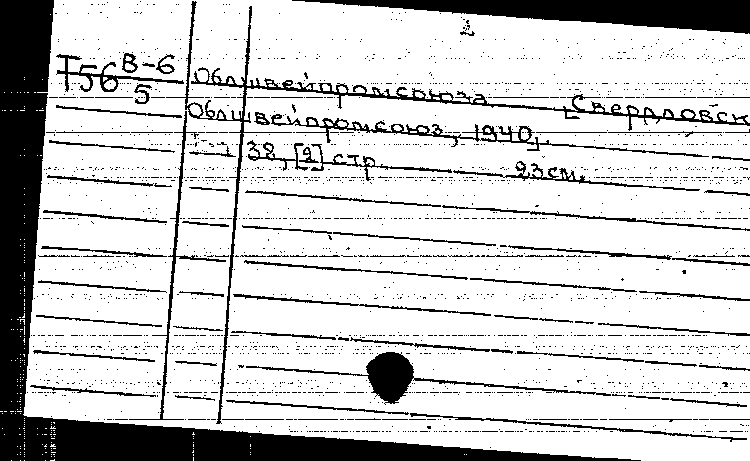 2
Т56 В-6
5
Облшвейпромсоюза [Свердловск
Облшвейпромсоюз, 1940].
38, [2] стр. 23 см.